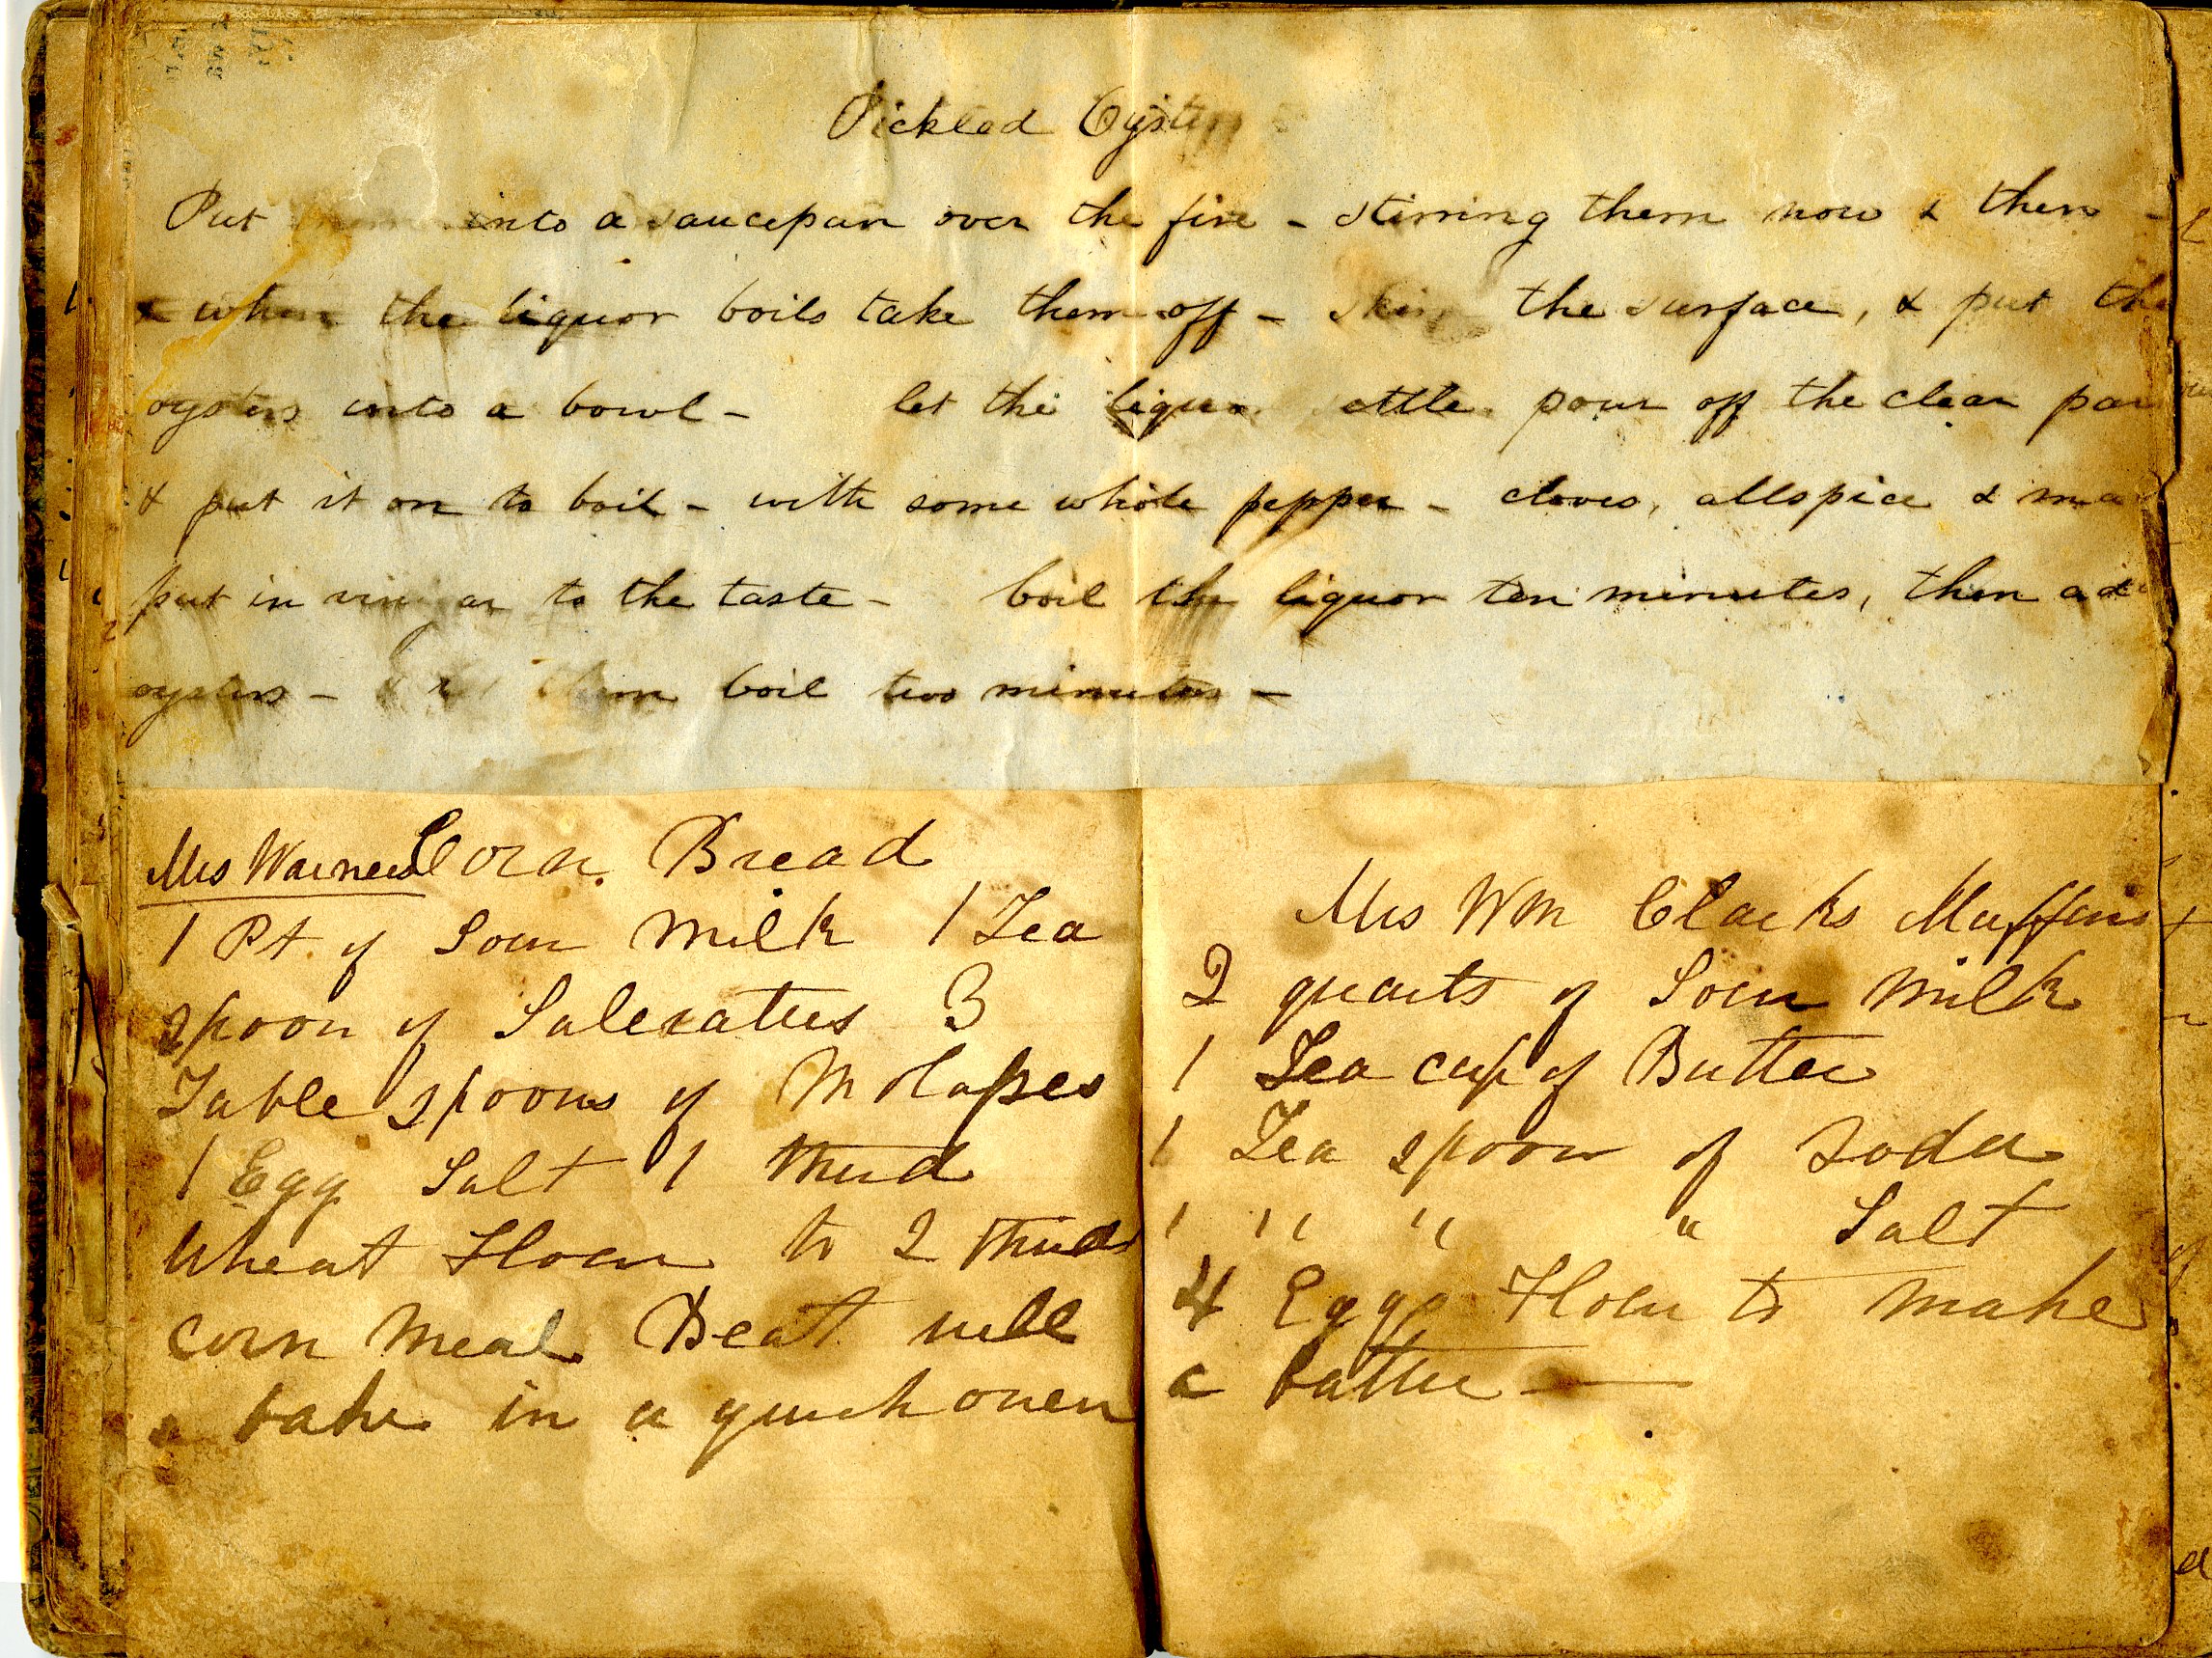 Pickled Oysters
Put them into a saucepan over the fire - stirring them now & then -
& when the liquor boils take them off - skim the surface, & put the
oysters into a bowl - let the liquor settle pour off the clear par
& put it on to boil - with some whole pepper - cloves, allspice & ma
put in vinegar to the taste - boil the liquor ten minutes, then add
oysters - & let them boil two minutes -
Mrs Warners Corn Bread
1 Pt of Sour Milk 1 Tea
spoon of Saleratus 3
Table spoons of Molasses
1 Egg Salt 1 third
Wheat Flour to 2 thirds
corn Meal Beat well
& bake in a quick oven
Mrs Wm Clarks Muffins
2 quarts of Sour Milk
1 Tea cup of Butter
1 Tea spoon of Soda
1 " " " Salt
4 Eggs Flour to make
a batter —